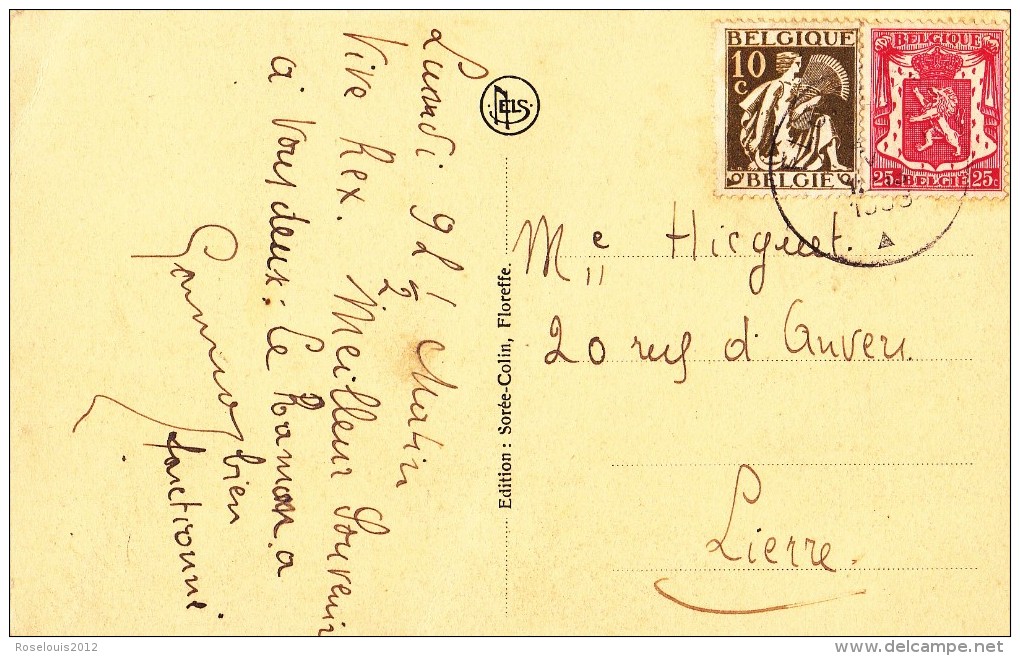 Lundi 9 h 1/2 Matin
Vive Rex. Meilleur Souvenir
à Vous deux. Le Ramon a
bien
fonctionné
NELS
Edition : Sorée-Colin, Floreffe.
BELGIQUE
10
c
BELGIË
BELGIQUE
25c BELGIË 25c
Mlle Hicguet.
20 rue d'Anvers
Lierre.
Roselouis2012
delcampe.net